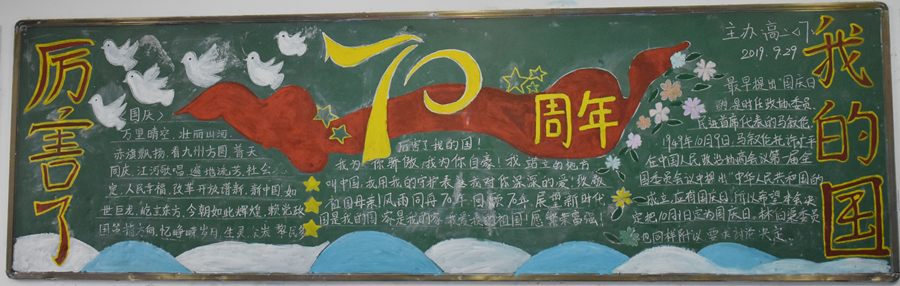 厉害了
我的国
70
周年
主办高二(7)
2019.9.29
《国庆》
万里晴空,壮丽山河
赤旗飘扬,看九州方圆,普天
同庆,江河歌唱,遍地流芳,社会
定,人民幸福,改革开放谱新,新中国如
世巨龙,屹立东方,今朝如此辉煌,赖党政
国 前方向,忆峥嵘岁月,生灵涂炭
厉害了我的国!
我为你骄傲,我为你自豪!我 的地方
叫中国,我用我的守护表达我对你深深的爱,
祖国母亲风雨同舟70年,回顾70年展望新时代
国是我的国 家是我的家 我爱我的祖国!愿 繁荣富强!
最早提出"国庆日"
的,是时任政协委员、
民进首席代表的马叙伦,
1949年10月9日,马叙伦托许广平
在中国人民政治协商会议第一届全
国委员会议中提出"中华人民共和国的
成立,应有国庆日,所以希望本会决
定把10月1日定为国庆日,林伯渠委员
也同样附议,要求讨论决定。